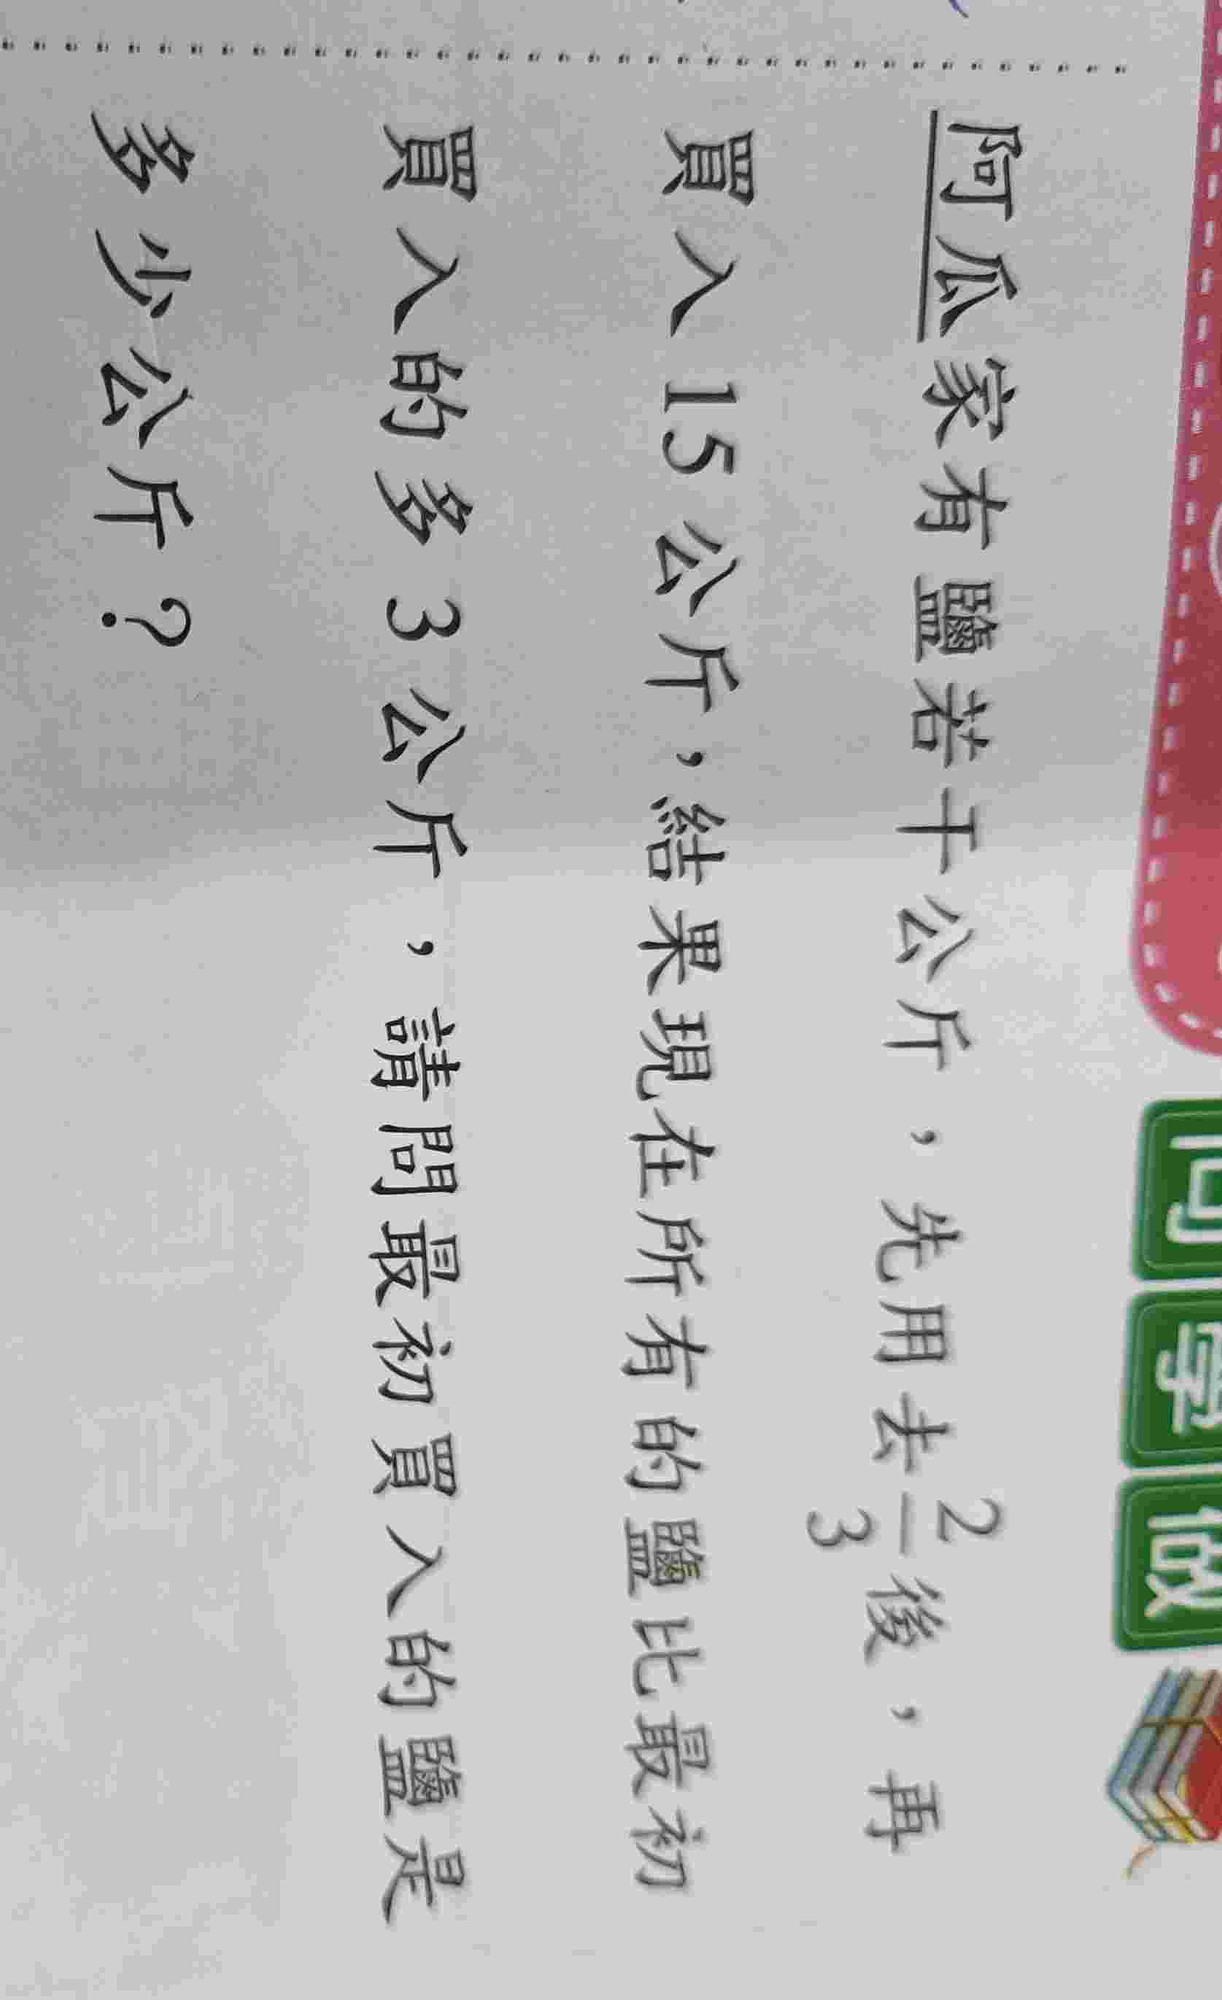 學
做
阿瓜家有鹽若干公斤，先用去2/3後，再
買入15公斤，結果現在所有的鹽比最初
買入的多3公斤，請問最初買入的鹽是
多少公斤？